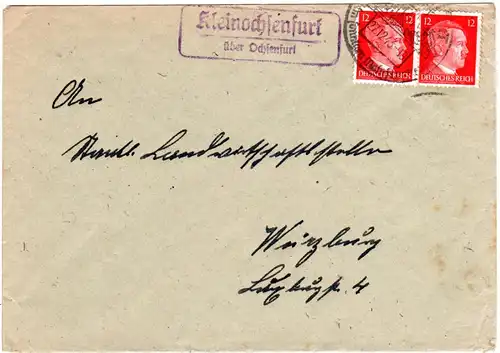 Kleinochsenfurt
über Ochsenfurt
12 12
DEUTSCHES REICH DEUTSCHES REICH
An
Staatl. Landwirtschaftsstelle
Würzburg
4